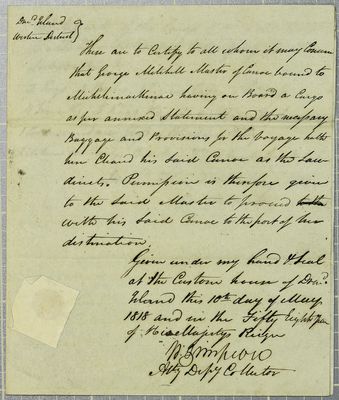 Dr.d Island &
Western District
These are to Certify to all whom it may Concern
that George Mitchell Master of Canoe bound to
Michilimackinac having on Board a Cargo
as per annexed Statement and the necessary
Baggage and Provisions for the Voyage hath
here Cleared his Said Canoe as the Law
directs. Permission is therefore given
to the Said Master to proceed
with his Said Canoe to the port of her
destination.
Given under my hand & Seal
at the Custom house of Drum.d
Island this 10th day of May
1818 and in the Fifty Eighth Year
of His Majestys Reign
Simpson
Actg Depy Collector